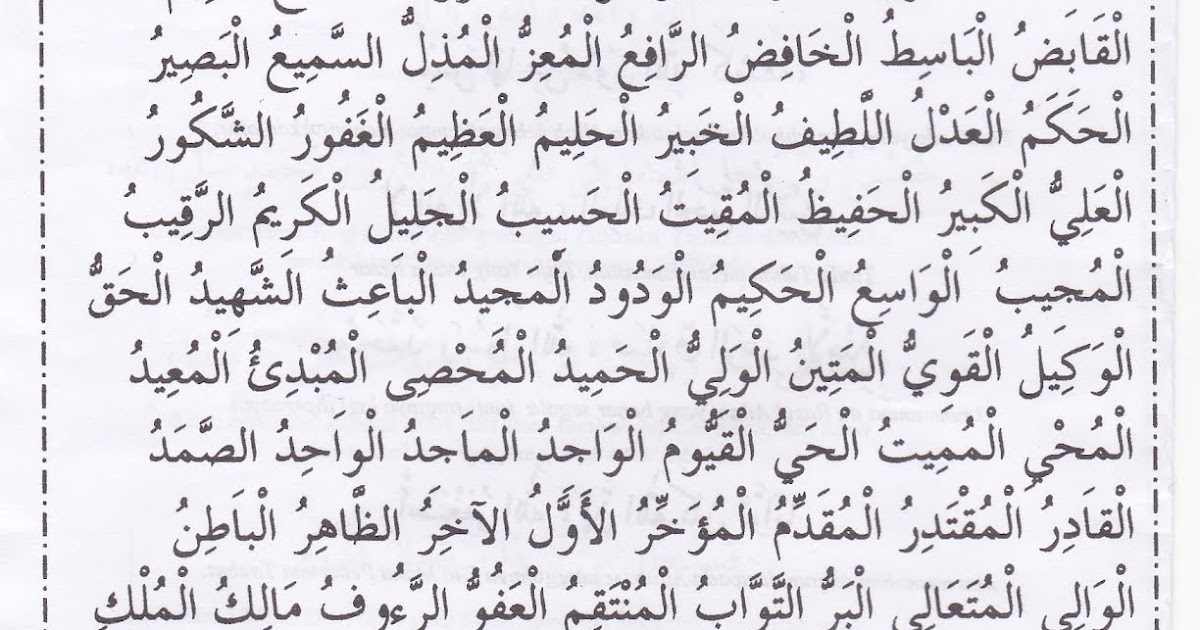 الْقَابَضُ الْبَاسِطُ الْخَافِضُ الرَّافِعُ الْمُعِزُّ الْمُذِلُّ السَّمِيعُ الْبَصِيرُ
الْحَكَمُ الْعَدْلُ اللَّطِيفُ الْخَبِيرُ الْحَلِيمُ الْعَظِيمُ الْغَفُورُ الشَّكُورُ
الْعَلِيُّ الْكَبِيرُ الْحَفِيظُ الْمُقِيتُ الْحَسِيبُ الْجَلِيلُ الْكَرِيمُ الرَّقِيبُ
الْمُجِيبُ الْوَاسِعُ الْحَكِيمُ الْوَدُودُ الْمَجِيدُ الْبَاعِثُ الشَّهِيدُ الْحَقُّ
الْوَكِيلُ الْقَوِيُّ الْمَتِينُ الْوَلِيُّ الْحَمِيدُ الْمُحْصِى الْمُبْدِئُ الْمُعِيدُ
الْمُحْيِ الْمُمِيتُ الْحَيُّ الْقَيُّومُ الْوَاجِدُ الْمَاجِدُ الْوَاحِدُ الصَّمَدُ
الْقَادِرُ الْمُقْتَدِرُ الْمُقَدِّمُ الْمُؤَخِّرُ الأَوَّلُ الآخِرُ الظَّاهِرُ الْبَاطِنُ
الْوَالِي الْمُتَعَالِي الْبَرُّ التَّوَّابُ الْمُنْتَقِمُ الْعَفُوُّ الرَّءوفُ مَالِكُ الْمُلْكِ